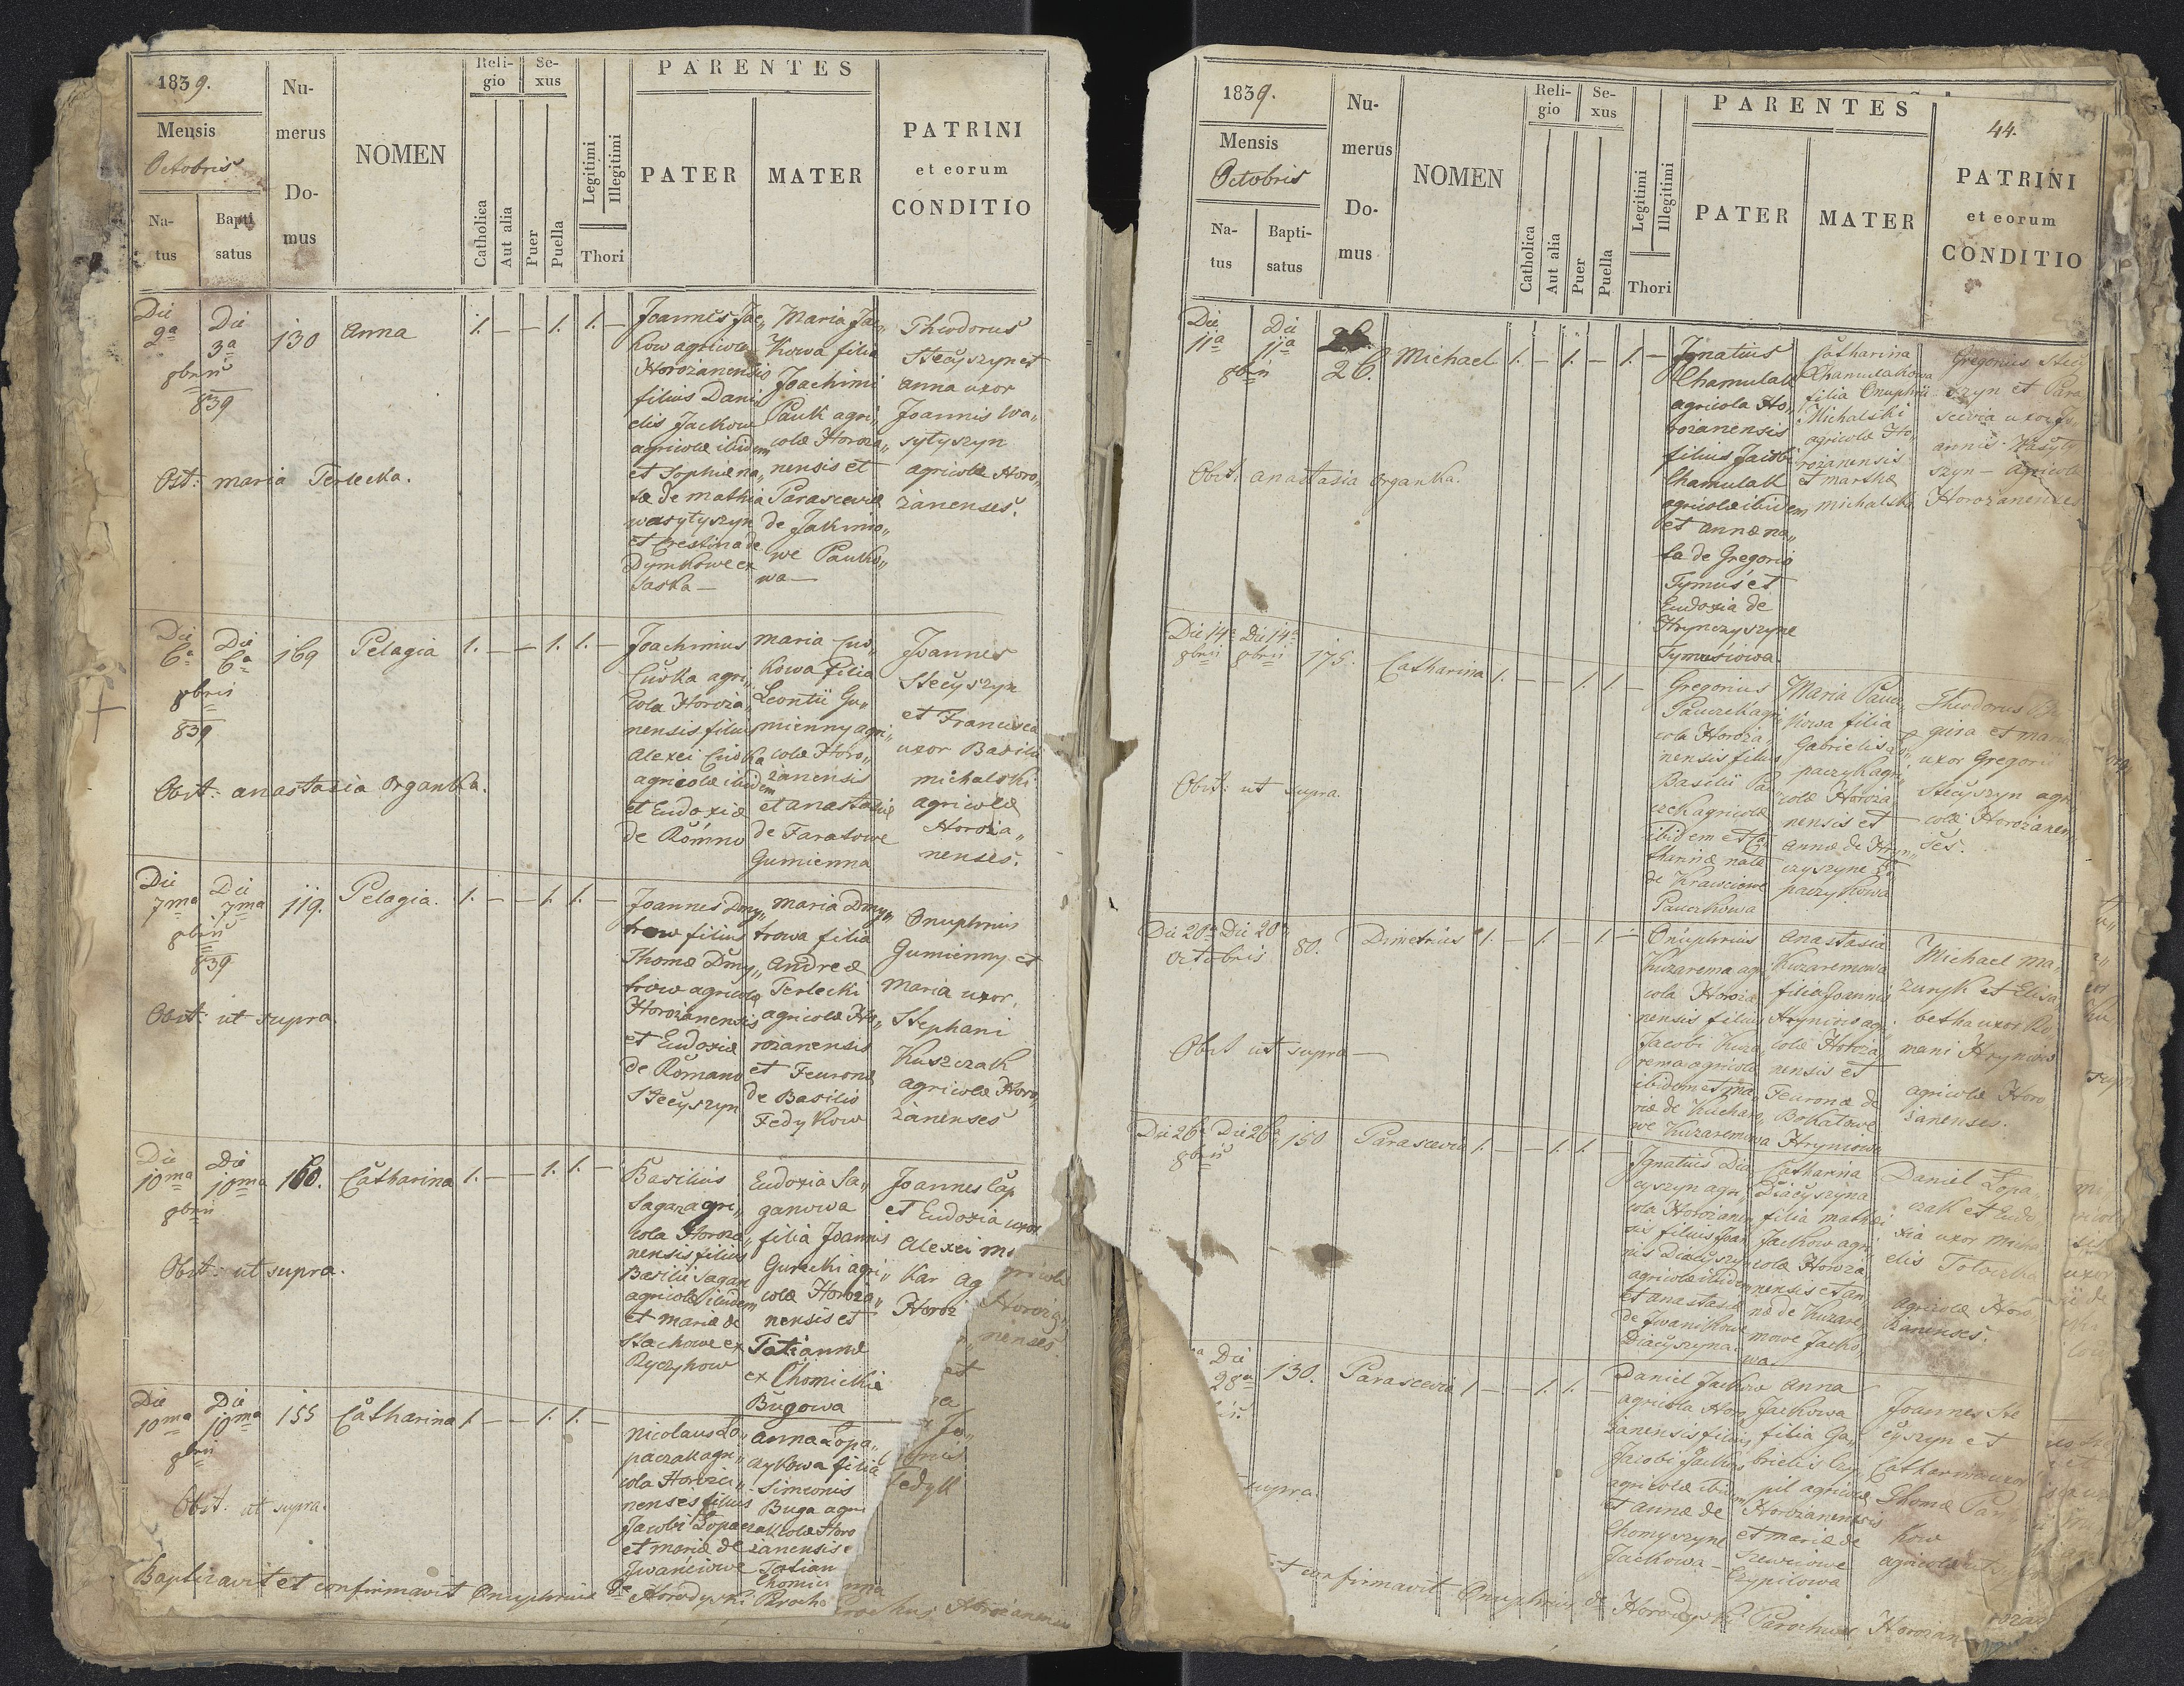 1839.
Mensis
Octobris
Na-
tus
Bapti
satus
Nu-
merus
Do-
mus
NOMEN
Reli-
gio
Catholica
Aut alia
Se-
xus
Puer
Puella
Legitimi
Illegitimi
Thori
PARENTES
PATER
MATER
PATRINI
et eorum
CONDITIO
Die
2a
Die
3a
8bris
839
130
Anna
1. — — 1. 1. —
Joannes Jac„
kow agricola
Horozanensis
filius Dani„
elis Jackow
agricolæ ibidem
et Sophiæ na„
tæ de Mathia
Wasytyszyn
et Crestina de
Dymkowe ex
Saska —
Maria Jac„
kowa filia
Joachimi
Pauk agri„
colæ Horoza„
nensis et
Parasceviæ
de Jakimo„
we Pauko„
wa —
Theodorus
Stecyszyn et
Anna uxor
Joannis Wa„
sytyszyn
agricolæ Horo„
zanenses.
Obst: Maria Terlecka.
Die
6a
Die
6a
8bris
839
169
Pelagia
1. — — 1. 1. —
Joachimus
Cuska agri„
cola Horoza„
nensis filius
Alexei Cuska
agricolæ ibidem
et Eudoxiæ
de Romno
Maria Cus„
kowa filia
Leontii Gu„
mienny agri„
colæ Horo„
zanensis
et Anastasiæ
de Taratowe
Gumienna
Joannes
Stecyszyn
et Francisca
uxor Basilii
Michalski
agricolæ
Horoza„
nenses.
Obst: Anastazia Organka.
Die
7ma
Die
7ma
8bris
839
119.
Pelagia.
1. — — 1. 1. —
Joannes Dmy„
trow filius
Thomæ Dmy„
trow agricolæ
Horozanensis
et Eudoxiæ
de Romano
Stecyszyn
Maria Dmy„
trowa filia
Andreæ
Terlecki
agricolæ Ho„
rozanensis
et Feuronæ
de Basilio
Fedykow
Onuphrius
Gumienny et
Maria uxor
Stephani
Kuszczak
agricolæ Horo„
zanenses
Obst: ut supra.
Die
10ma
Die
10ma
8bris
160.
Catharina
1. — — 1. 1. —
Basilius
Sagan agri„
cola Horoza„
nensis filius
Basilii Sagan
agricolæ ibidem
et Mariæ de
Stachowe ex
Ryczykow
Eudoxia Sa„
ganowa
filia Joannis
Gurecki agri„
colæ Horoza„
nensis et
Tatiannæ
ex Chomickie
Bugowa
Joannes Cap
et Eudoxia uxor
Alexei
agricolæ
Horoza„
nenses.
Obst: ut supra.
Die
10ma
Die
10ma
8bris
155
Catharina
1 — — 1. 1. —
Nicolaus Lo„
paczak agri„
cola Horoza„
nenses filius
Jacobi Lopaczak
et Mariæ de
Iwanciowe
Anna Lopa„
czykowa filia
Simeonis
Buga agri
colæ Horo
zanensis e
Tatian
Chomic
Fedyk
Obst: ut supra.
Baptizavit et confirmavit Onuphrius de Horodyski Parochus Horozanensis
1839.
44.
Mensis
Octobris
Na-
tus
Bapti-
satus
Nu-
merus
Do-
mus
NOMEN
Reli-
gio
Catholica
Aut alia
Se-
xus
Puer
Puella
Legitimi
Illegitimi
Thori
PARENTES
PATER
MATER
PATRINI
et eorum
CONDITIO
Die
11a
Die
11a
8bris
26.
Michael
1. — 1. — 1. —
Ignatius
Chamulak
agricola Ho„
rozanensis
filius Jacobi
Chamulak
agricolæ ibidem
et Annæ na„
ta de Gregorio
Tymus et
Eudoxia de
Hrynczyszyne
Tymusiowa.
Catharina
Chamulakowa
filia Onuphrii
Michalski
agricolæ Ho„
rozanensis
et Marthæ
Michalska
Gregorius Stecy
szyn et Para
scevia uxor Jo„
annis Wasyty
szyn — agricolæ
Horozanenses
Obst: Anastasia Organka.
Die 14a
8bris
Die 14a
8bris
175.
Catharina
1. — — 1. 1. —
Gregorius
Pauczek agri
cola Horoza„
nensis filius
Basilii Pau
czek agricolæ
ibidem et Ca„
tharinæ natæ
de Krawciowe
Pauczkowa
Maria Paucz
kowa filia
Gabrielis Lo„
paczyk agri„
colæ Horoza„
nensis et
Annæ de Hryn„
czyszyne Lo
paczykowa
Theodorus
et Maria
uxor Gregorii
Stecyszyn agri
colæ Horozanen
ses.
Obst: ut supra.
Die 20a
Die 20a
Octobris
80.
Dimetrius
1. — 1. — 1. —
Onuphrius
Kuzarema agri
cola Horoza
nensis filius
Jacobi Kuza
rema agricolæ
ibidem et Ma„
riæ de Kucharo„
we Kuzaremowa
Anastasia
Kuzaremowa
filia Joannis
Hryniow agri
colæ Horoza„
nensis et
Feuronæ de
Bokatowe
Hryniowa
Michael Ma
zuryk et Elisa
betha uxor Ro
mani Hryniow
agricolæ Horo„
zanenses.
Obst ut supra —
Die 26a
Die 26a
8bris
150
Parascevia
1. — — 1. 1.
Ignatius Dia
cyszyn agri„
cola Horozanen
sis filius Joan
nis Diacyszyn
agricolæ ibidem
et Anastasiæ
de Iwanikowe
Diacyszyna.
Catharina
Diacyszyna
filia Mathæi
Jackow agri„
colæ Horoza„
nensis et An„
næ de Kuzare„
mowe Jacko„
wa
Daniel Lopa„
czak et Eudo„
xia uxor Micha
elis Toloczka
agricolæ Horo„
zanenses.
Die
28a
130.
Parascevia
1 — — 1. 1. —
Daniel Jackow
agricola Horo
zanensis filius
Jacobi Jackow
agricolæ ibidem
et Annæ de
Chomyszyne
Jackowa —
Anna
Jackowa
filia Ga„
brielis Czy
pil agricolæ
Horozanensis
et Mariæ de
Szewciowe
Czypilowa
Joannes Ste
cyszyn et
Catharina uxor
Thomæ
kow
agricolæ
supra.
et confirmavit Onuphrius de Horodyski Parochus Horozan